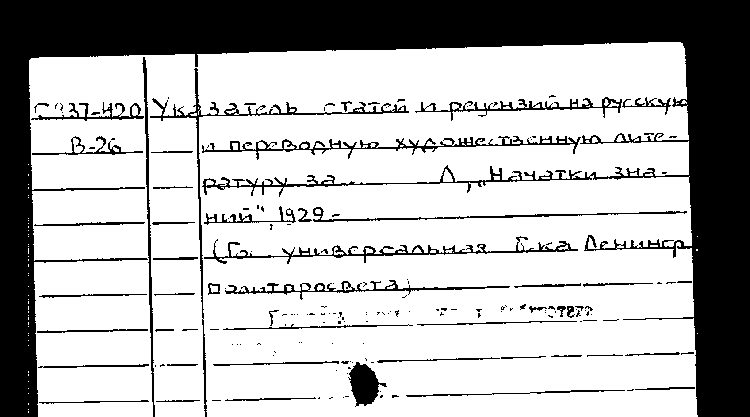 С937-420 Указатель статей и рецензий на русскую
В-26 и переводную художественную лите-
ратуру за... Л, „Начатки зна-
ний", 1929-
(Го. универсальная б-ка Ленингр
политпросвета)